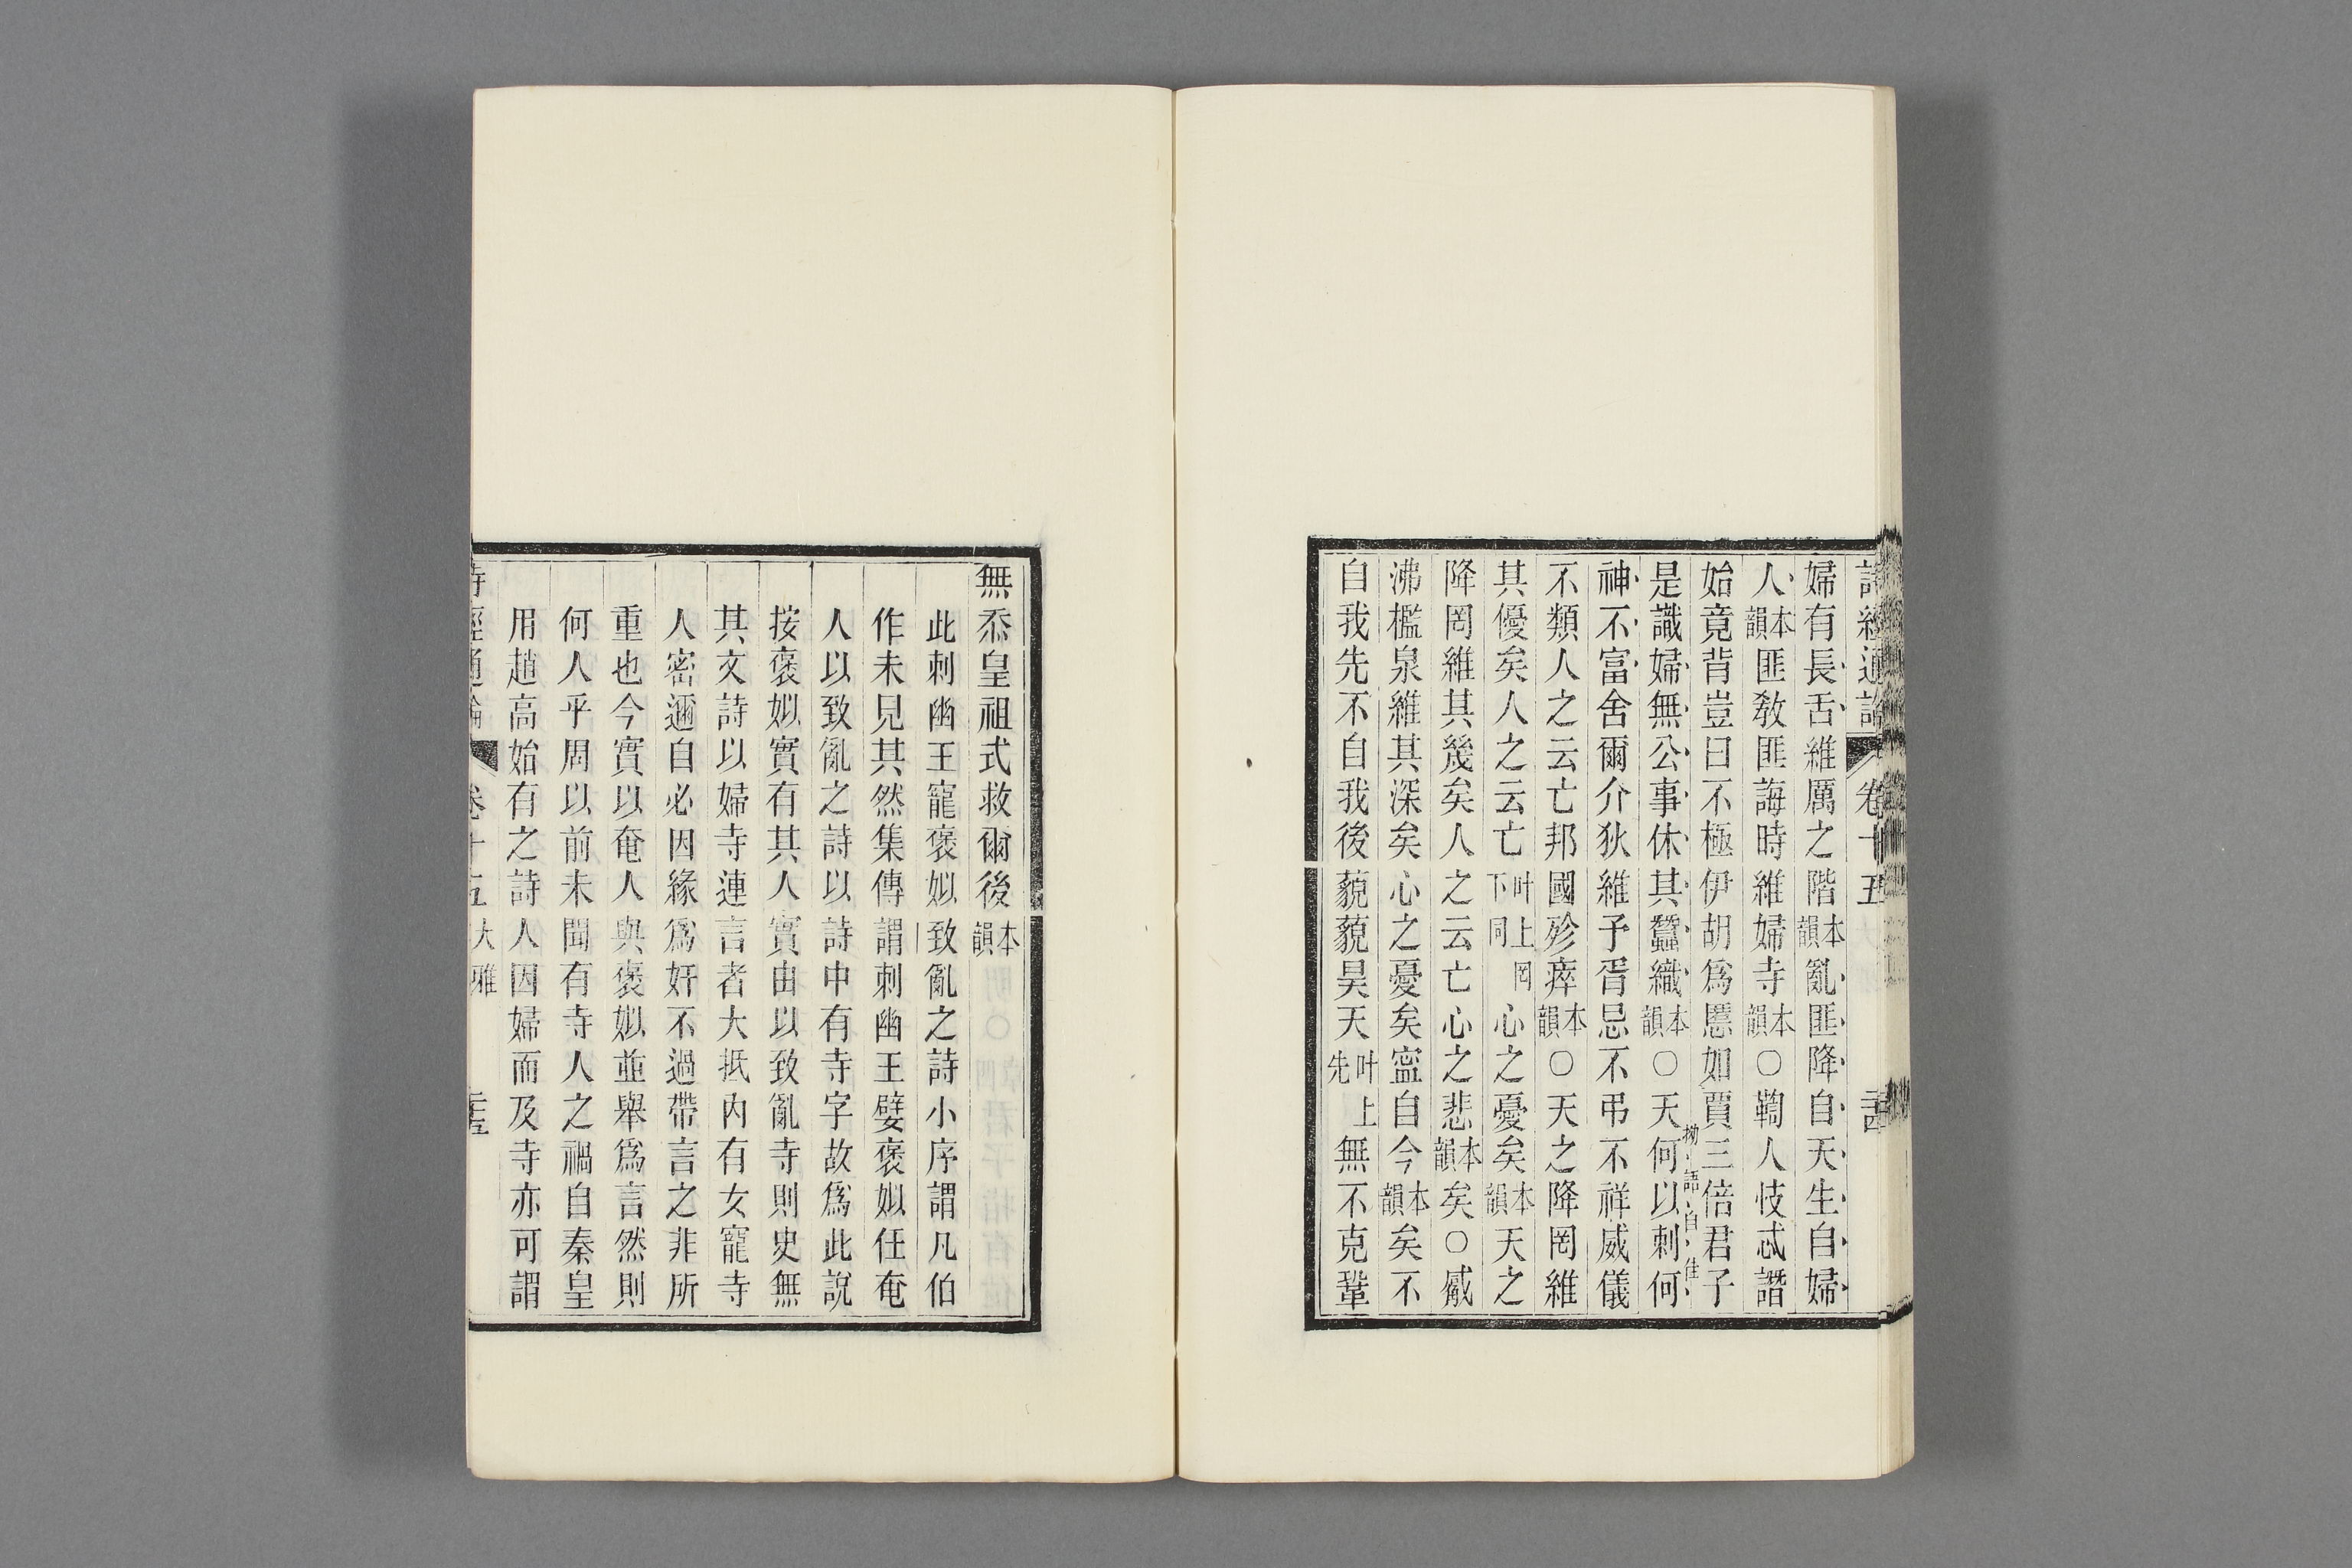 詩經通論 卷十五 二十四
婦有長舌維厲之階本韻亂匪降自天生自婦
人本韻匪教匪誨時維婦寺本韻〇鞫人忮忒譖
始竟背豈曰不極伊胡爲慝如賈三倍君子
拗語自佳
是識婦無公事休其蠶織本韻〇天何以刺何
神不富舍爾介狄維予胥忌不弔不祥威儀
不類人之云亡邦國殄瘁本韻〇天之降罔維
其優矣人之云亡叶上罔下同心之憂矣本韻天之
降罔維其幾矣人之云亡心之悲本韻矣〇觱
沸檻泉維其深矣心之憂矣寍自今本韻矣不
自我先不自我後藐藐昊天叶上先無不克鞏
無忝皇祖式救爾後本韻
此刺幽王寵褒姒致亂之詩小序謂凡伯
作未見其然集傳謂刺幽王嬖褒姒任奄
人以致亂之詩以詩中有寺字故爲此說
按褒姒實有其人實由以致亂寺則史無
其文詩以婦寺連言者大抵內有女寵寺
人密邇自必因緣爲奸不過帶言之非所
重也今實以奄人與褒姒並舉爲言然則
何人乎周以前未聞有寺人之禍自秦皇
用趙高始有之詩人因婦而及寺亦可謂
詩經通論 卷十五 大雅 二十五